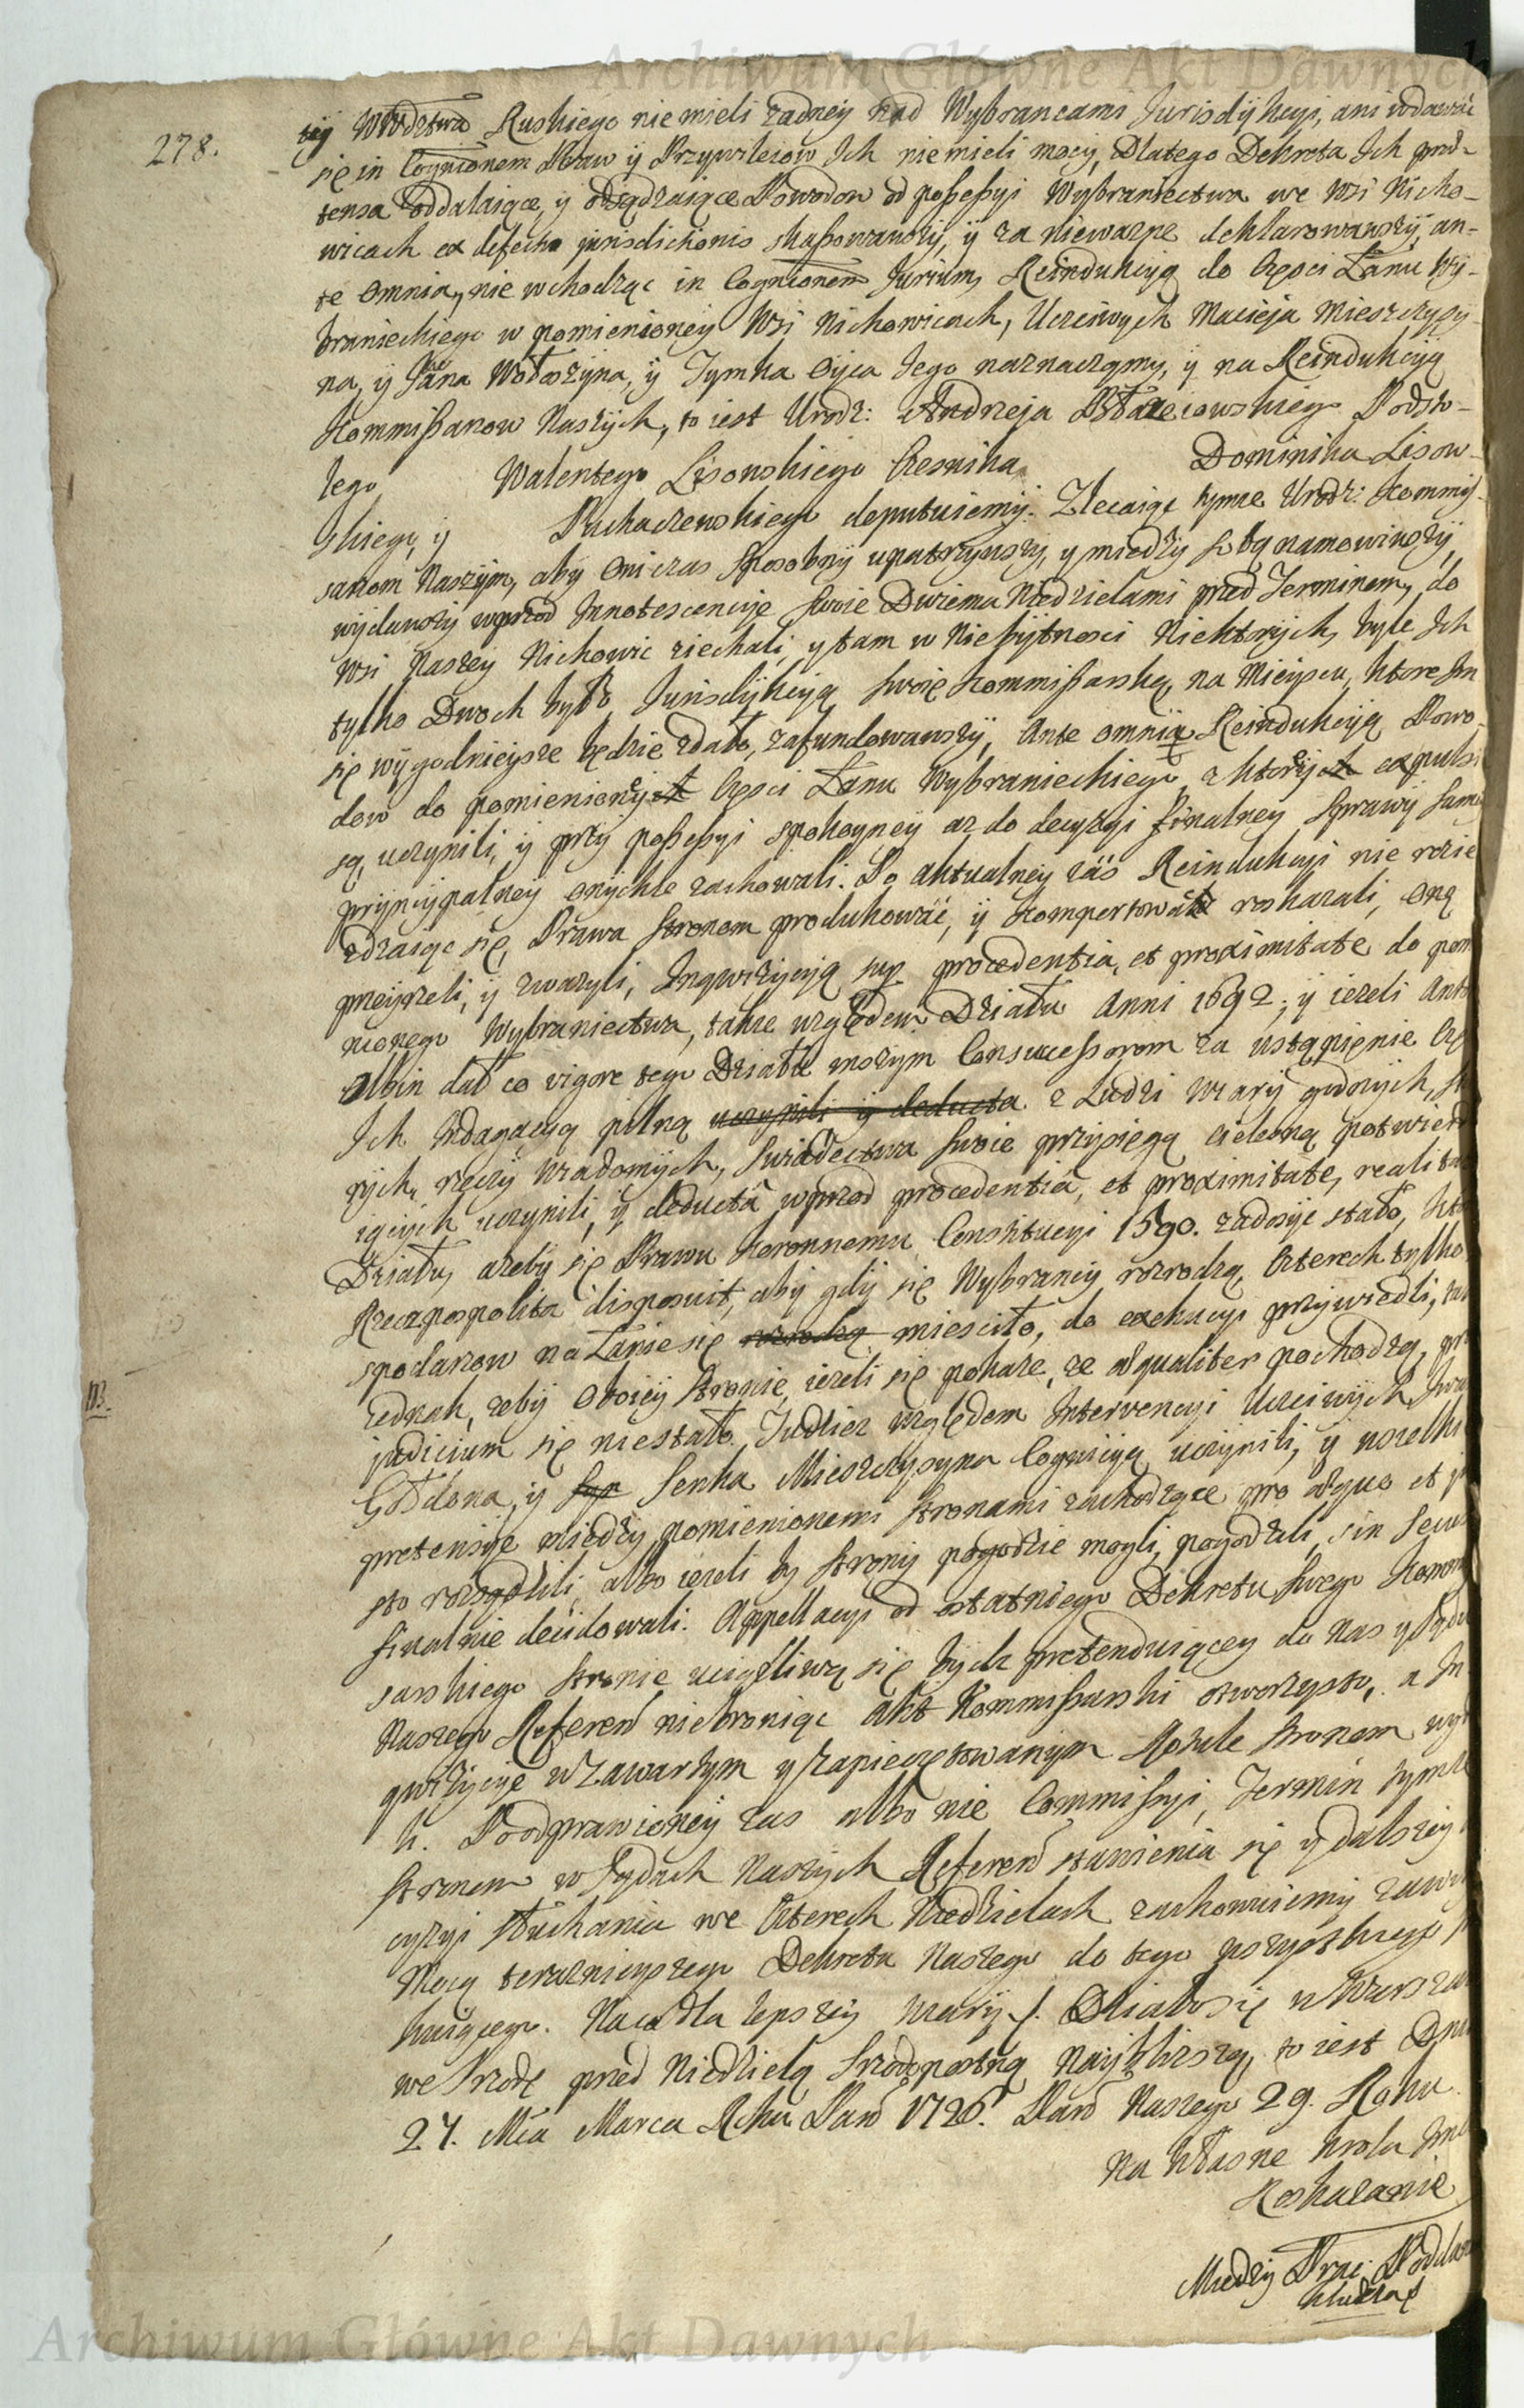 Archiwum Główne Akt Dawnych
278.
tey Wdztwa Ruskiego nie mieli żadney nad Wybrancami Jurisdykcyi, ani wdawać
się in Cognitionem Praw y Przywileiow Ich nie mieli mocy, Dlatego Dekreta Ich prae-
tensa oddalaiące, y odsądzaiące Powodow od possessyi Wybraniectwa we Wsi Nicho-
wicach ex defectu jurisdictionis skassowawszy, y za nieważne deklarowawszy, an-
te omnia, nie wchodząc in Cognitionem Jurium, Reindukcyą do Części Łanu Wy-
branieckiego w pomienioney Wsi Nichowicach, Uczciwych Macieja Mieszczysy-
na, y Jana Wołoszyna, y Tymka Oyca Jego naznaczamy, y na Reindukcyą
Kommissarzow Naszych, to iest Urodz: Andrzeja Podsto-
lego Walentego Lisowskiego Cześnika Dominika Lisow-
skiego, y Puchaczewskiego deputuiemy. Zlecaiąc tymże Urodz: Kommis-
sarzom Naszym, aby oni czas sposobny upatrzywszy, y miedzy sobą namowiwszy,
wydawszy wprzod Innotescencye swoie Dwiema Niedzielami przed Terminem, do
Wsi Naszey Nichowic ziechali, y tam w Niebytnosci Niektorych, byle Ich
tylko Dwoch było Jurisdykcyą swoię Kommissarską, na Mieyscu, ktore Im
się wygodnieysze będzie zdało, zafundowawszy, Ante omnia Reindukcyą Powo-
dow do pomienionych Części Łanu Wybranieckiego, z ktorych expulsi
są, uczynili, y przy possessyi spokoyney az do decyzyi finalney Sprawy samey
pryncypalney onychże zachowali. Po aktualney zaś Reindukcyi nie rozie-
zdzaiąc się, Prawa Stronom produkować, y komportować roskazali, one
przeyrzeli, y zwazyli, Inqwizycyą sup procedentia, et proximitate do pom
nionego Wybraniectwa, także względem Działu Anni 1692; y iezeli Anto
Albin dał co vigore tego Działu inszym Consuccessorom za ustąpienie Czę
Ich Indagacyą pilną uczynili y deducta z Ludzi wiary godnych, st
rych, rzeczy wiadomych, Swiadectwa swoie przysięgą cielesną potwierdz
iących uczynili, y deducta wprzod procedentia, et proximitate, realita
Działu, azeby się Prawu Koronnemu Constitucyi 1590. zadosyć stało, kto
Rzeczpospolita disposuit, aby gdy się Wybrancy rozrodzą, Czterech tylko
spodarzow na Łanie się rozrodzą miesciło, do exekucyi przywiedli, tak
Iednak, zeby oboiey Stronie, iezeli się pokaze, ze aequaliter pochodzą, pre
judicium się niestało. Tudziez względem Intervencyi Uczciwych Iwa
y syn Senka Mieszczysyna Cognicyą uczynili, y wszelki
pretensye miedzy pomienionemi Stronami zachodzące pro aequo et ju
sto rozsądzili, albo iezeli by Strony pogodzic mogli, pogodzili, sin secus
finalnie decidowali. Appellacyi od ostatniego Dekretu swego Kommis
sarskiego stronie uciązliwą się bydz pretenduiącey do Nas y Sądu
Naszego Referen niebroniąc akt Kommissarski otworzysto, a In
qwizycye w zawartym y zapieczętowanym Rotule stronom wyd
li. Poodprawioney zas albo nie Commissyi, Termin tymze
stronom w Sądach Naszych Referen stawienia się y dalszey
cyzyi słuchania we Czterech Niedzielach zachowuiemy zawi
Mocą teraznieyszego Dekretu Naszego do tego wszystkiego
kuiącego. Na co dla lepszey wiary f. Działo się w Warszaw
we Srzodę przed Niedzielą Srzodopostną Nayblizszą, to iest Dnia
27. Mca Marca Roku Pań 1726. Pańo Naszego 29. Roku
Na Własne Krola Jmci
Roskazanie
Miedzy Prac: Poddan
NB.
Archiwum Główne Akt Dawnych